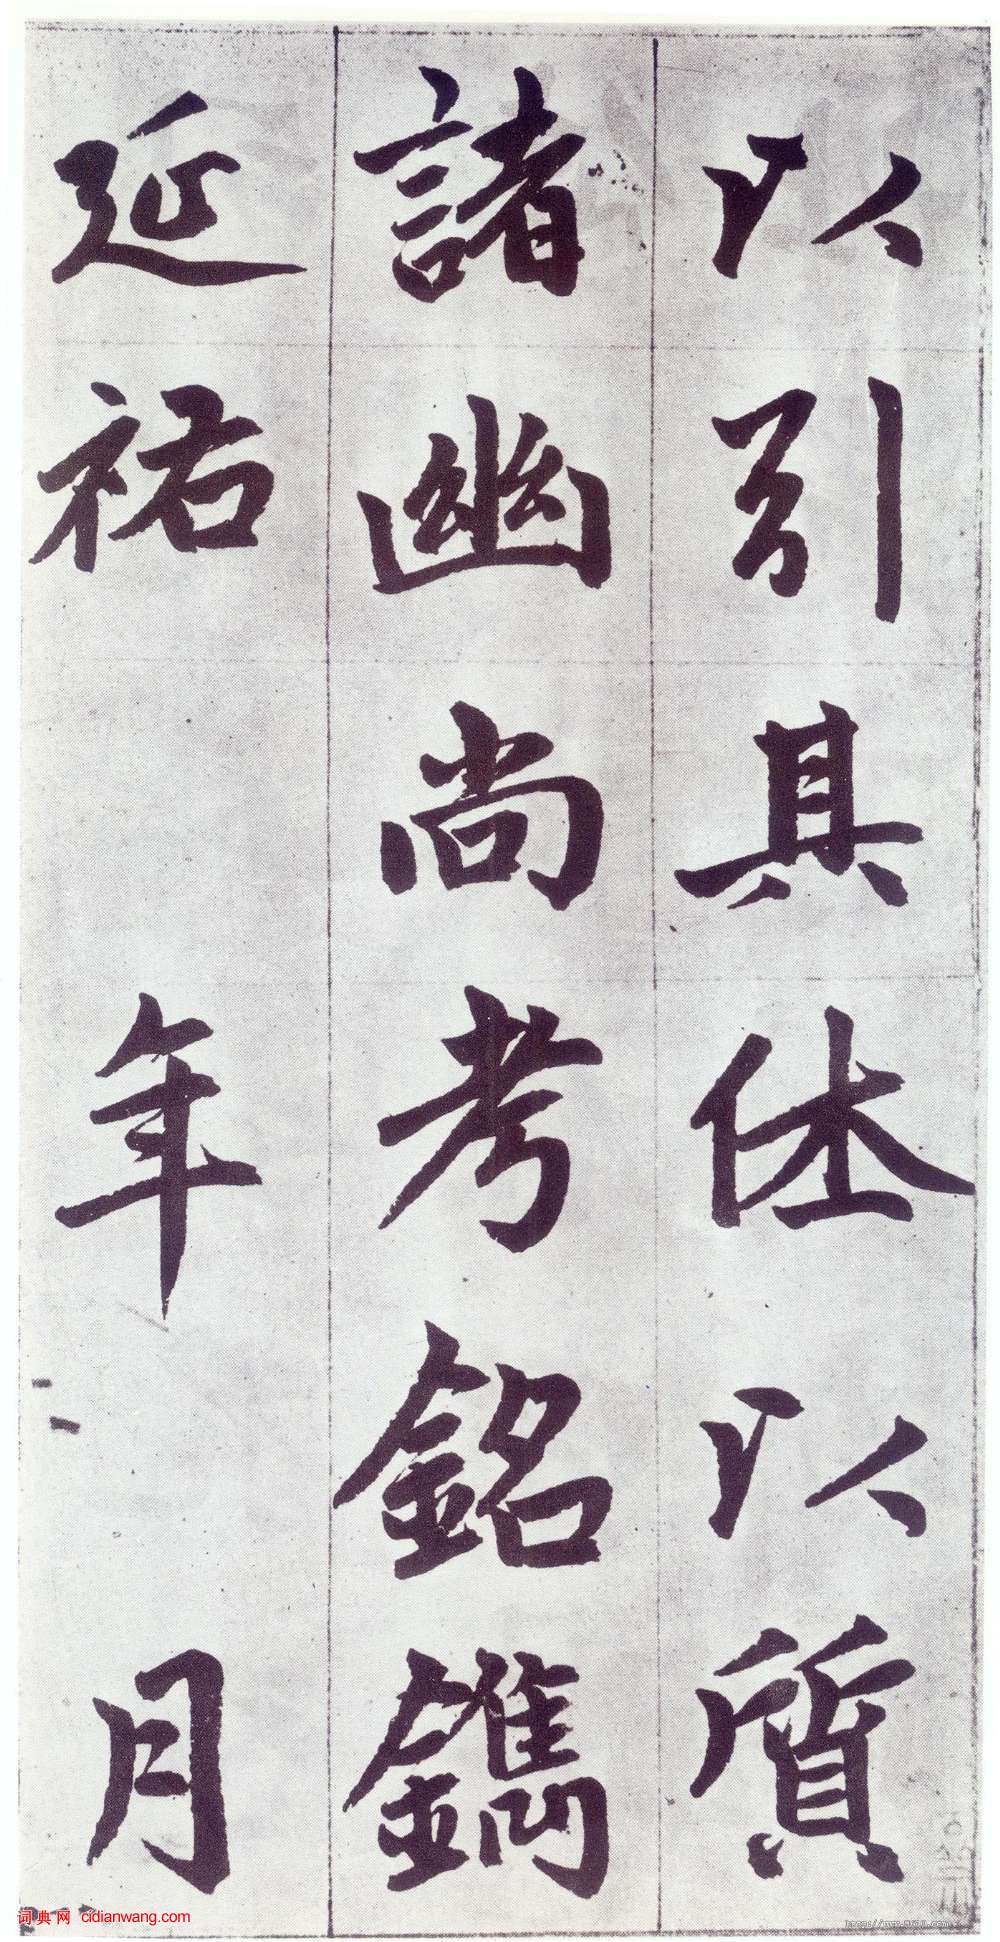 以引具休以質
諸幽尚考銘鐫
延祐年月
词典网 cidianwang.com